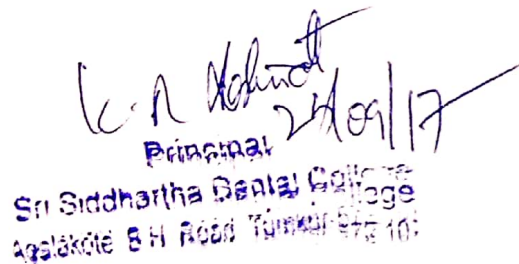 25/09/17
Principal
Sri Siddhartha Dental College
Agalakote B H Road Tumkur